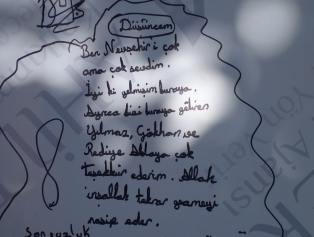 Düşüncem
Ben Nevşehir'i çok
ama çok sevdim.
İyi ki gelmişim buraya.
Ayrıca bizi buraya getiren
Yılmaz, Gökhan ve
Radiye Ablaya çok
teşekkür ederim. Allah
inşallah tekrar görmeyi
nasip eder.
Sonsuzluk